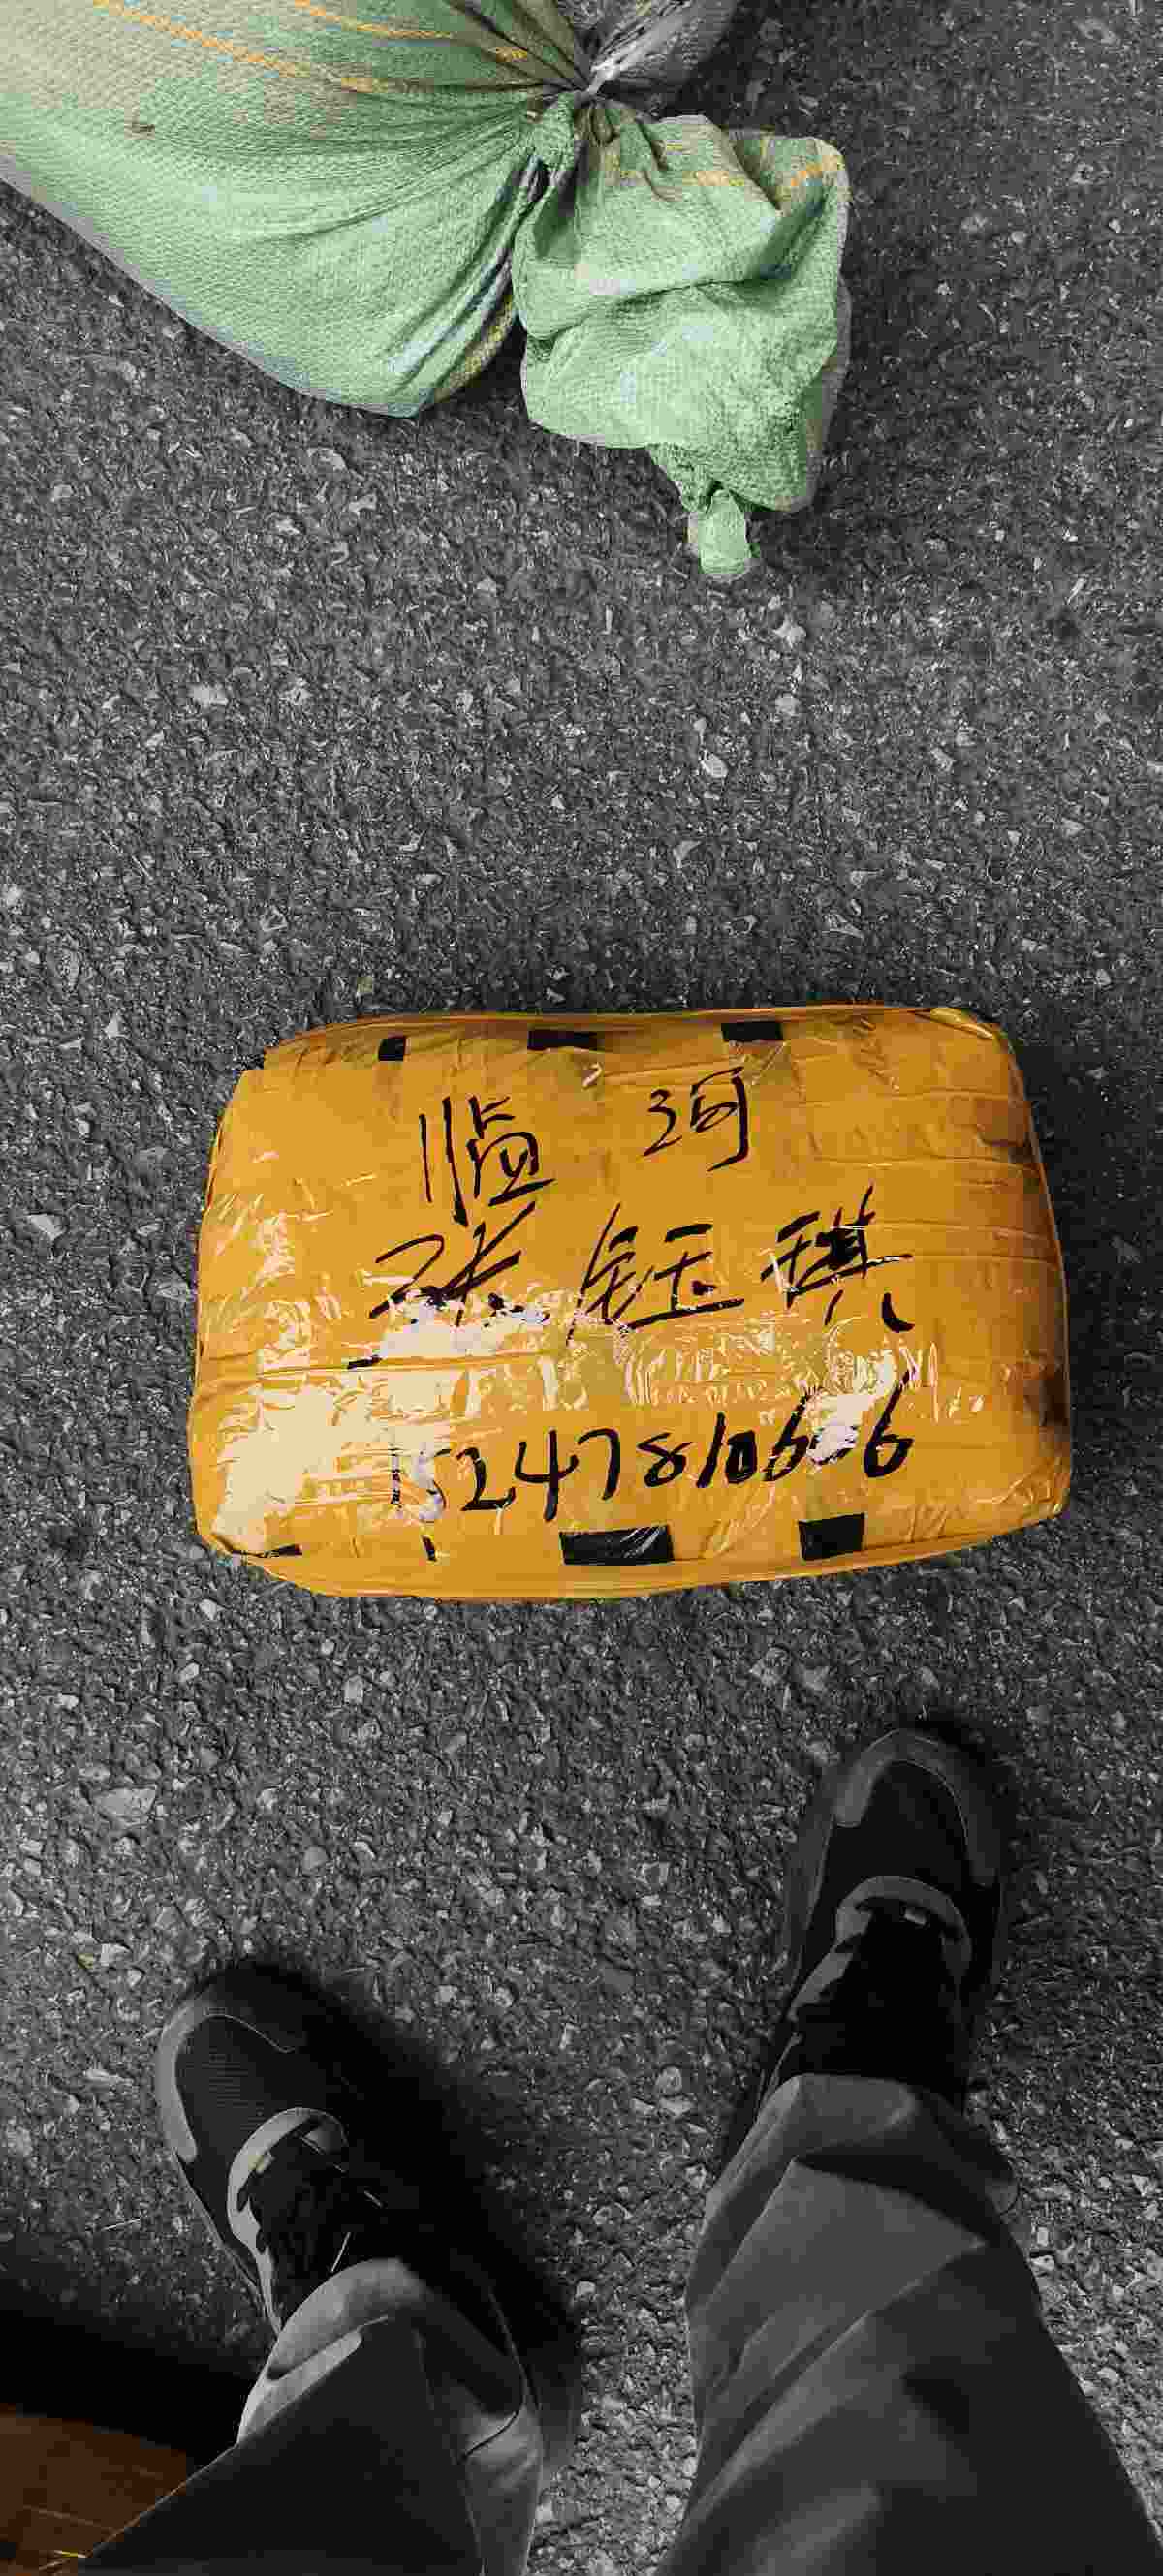 临河
张钰琪
15247810666